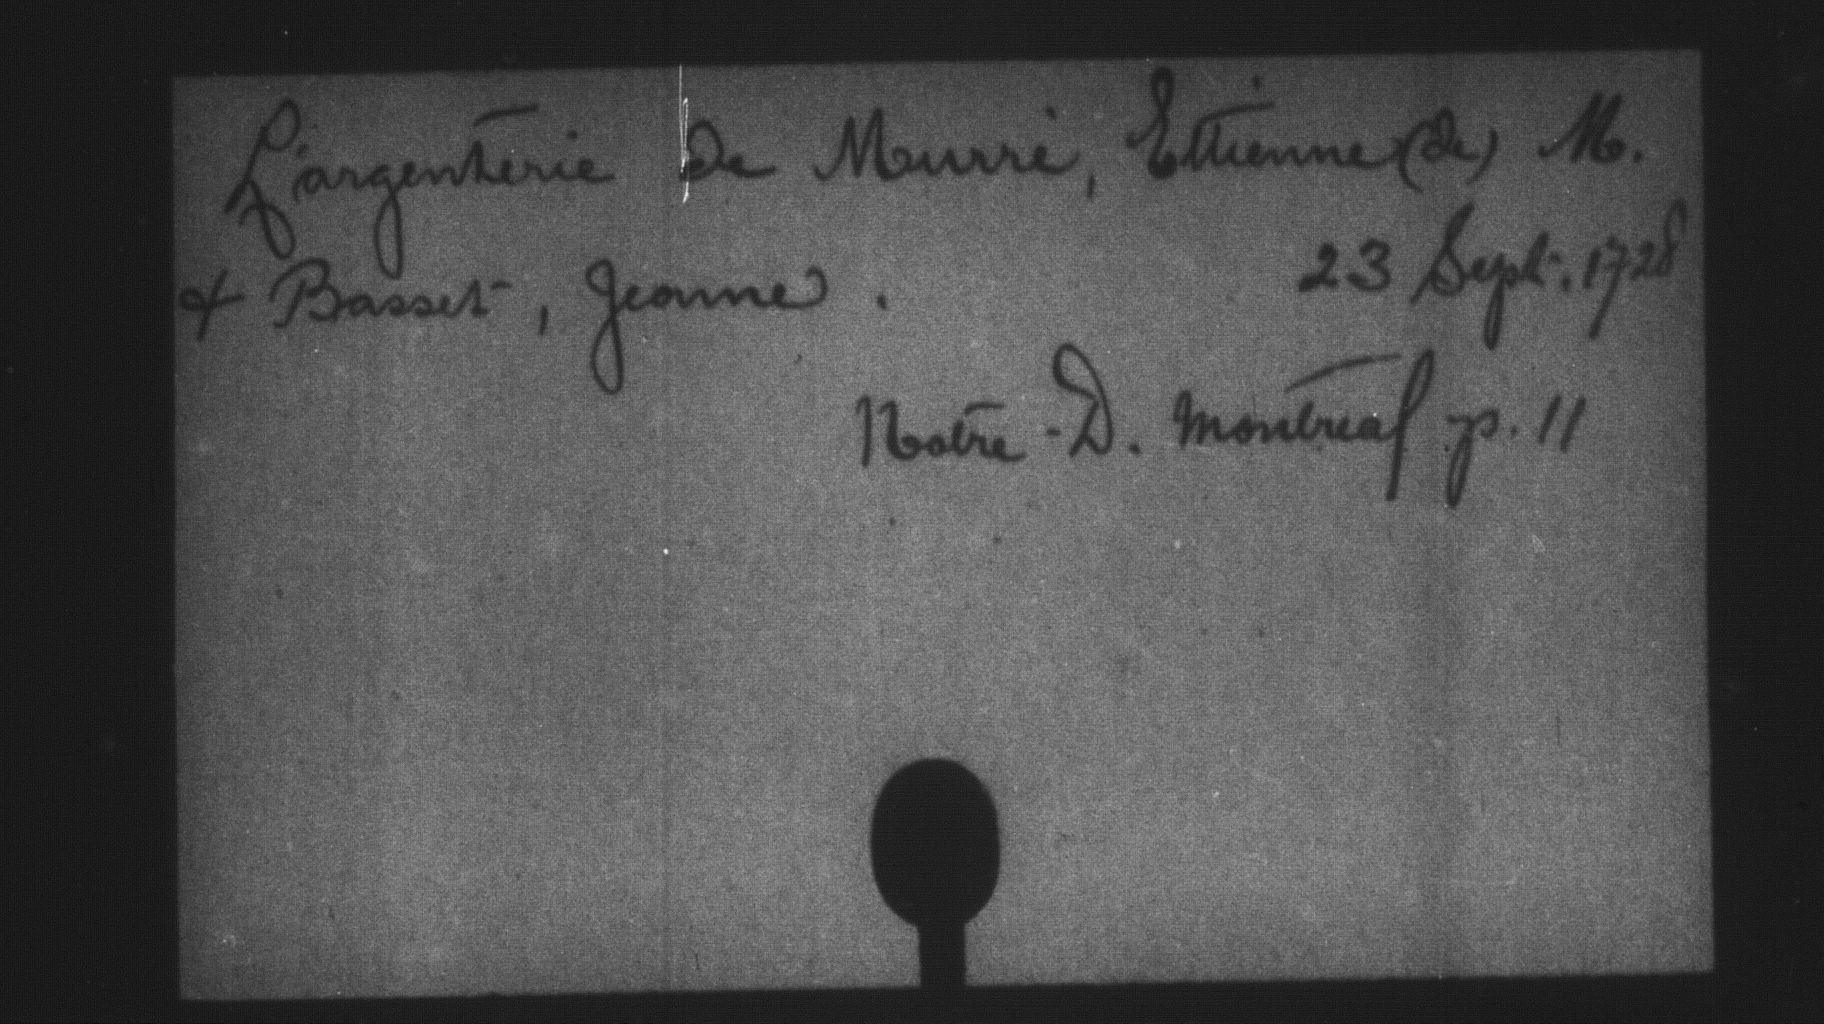 L'argenterie de Murri, Ettienne (de) M.
& Basset, Jeanne. 23 Sept. 1728
Notre-D. Montreal p. 11